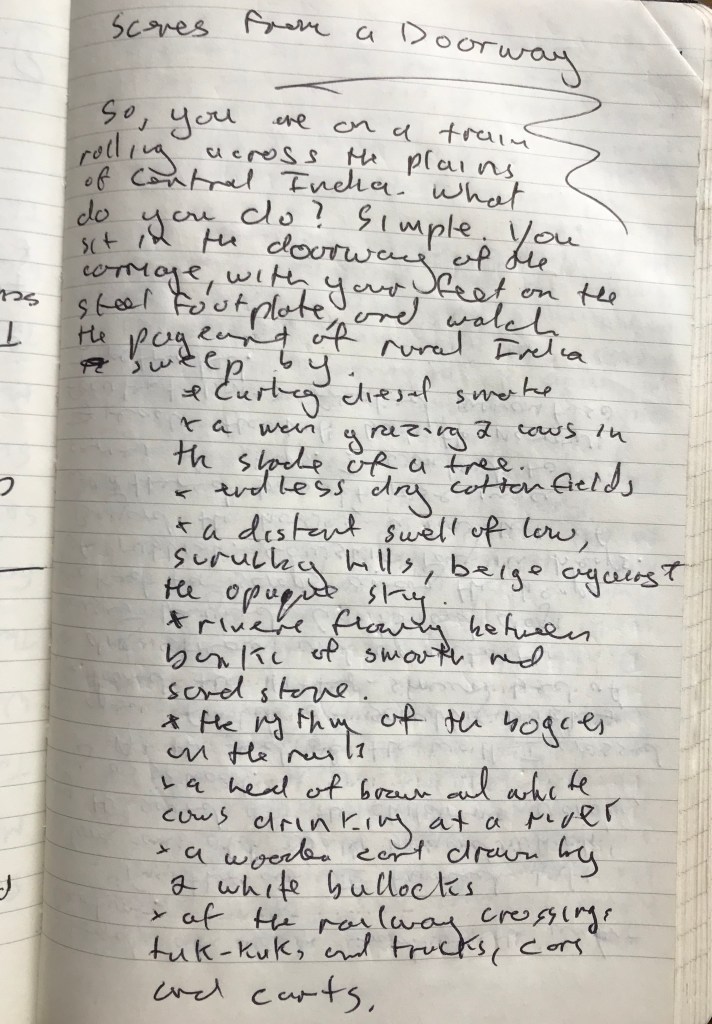 Scenes from a Doorway
So, you are on a train
rolling across the plains
of Central India. What
do you do? Simple. You
sit in the doorway of the
carriage, with your feet on the
steel footplate, and watch
the pageant of rural India
sweep by.
* Curling diesel smoke
* a man grazing 2 cows in
the shade of a tree.
* endless dry cotton fields
* a distant swell of low,
scrubby hills, beige against
the opaque sky.
* rivers flowing between
banks of smooth red
sandstone.
* the rythm of the bogies
on the rails
* a herd of brown and white
cows drinking at a river
* a wooden cart drawn by
2 white bullocks
* at the railway crossings
tuk-kuks and trucks, cars
and carts.